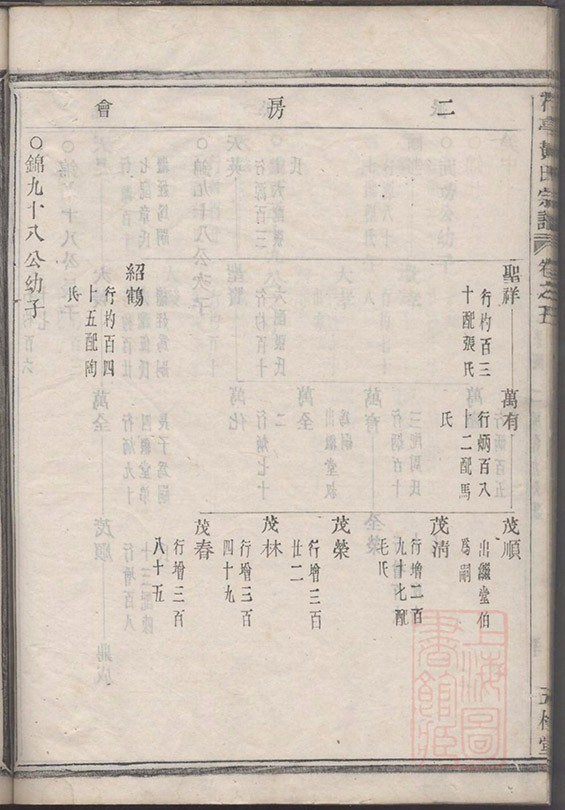 卷之五
二房會
聖祥
行杓百三
十配張氏
萬有
行炳百八
十二配馬
氏
茂順
出繼堂伯
爲嗣
茂清
行增二百
九十七配
毛氏
茂榮
行增三百
廿二
茂林
行增三百
四十九
茂春
行增三百
八十五
紹鶴
行杓百四
十五配陶
氏
○錦九十八公幼子
上海圖
書館藏